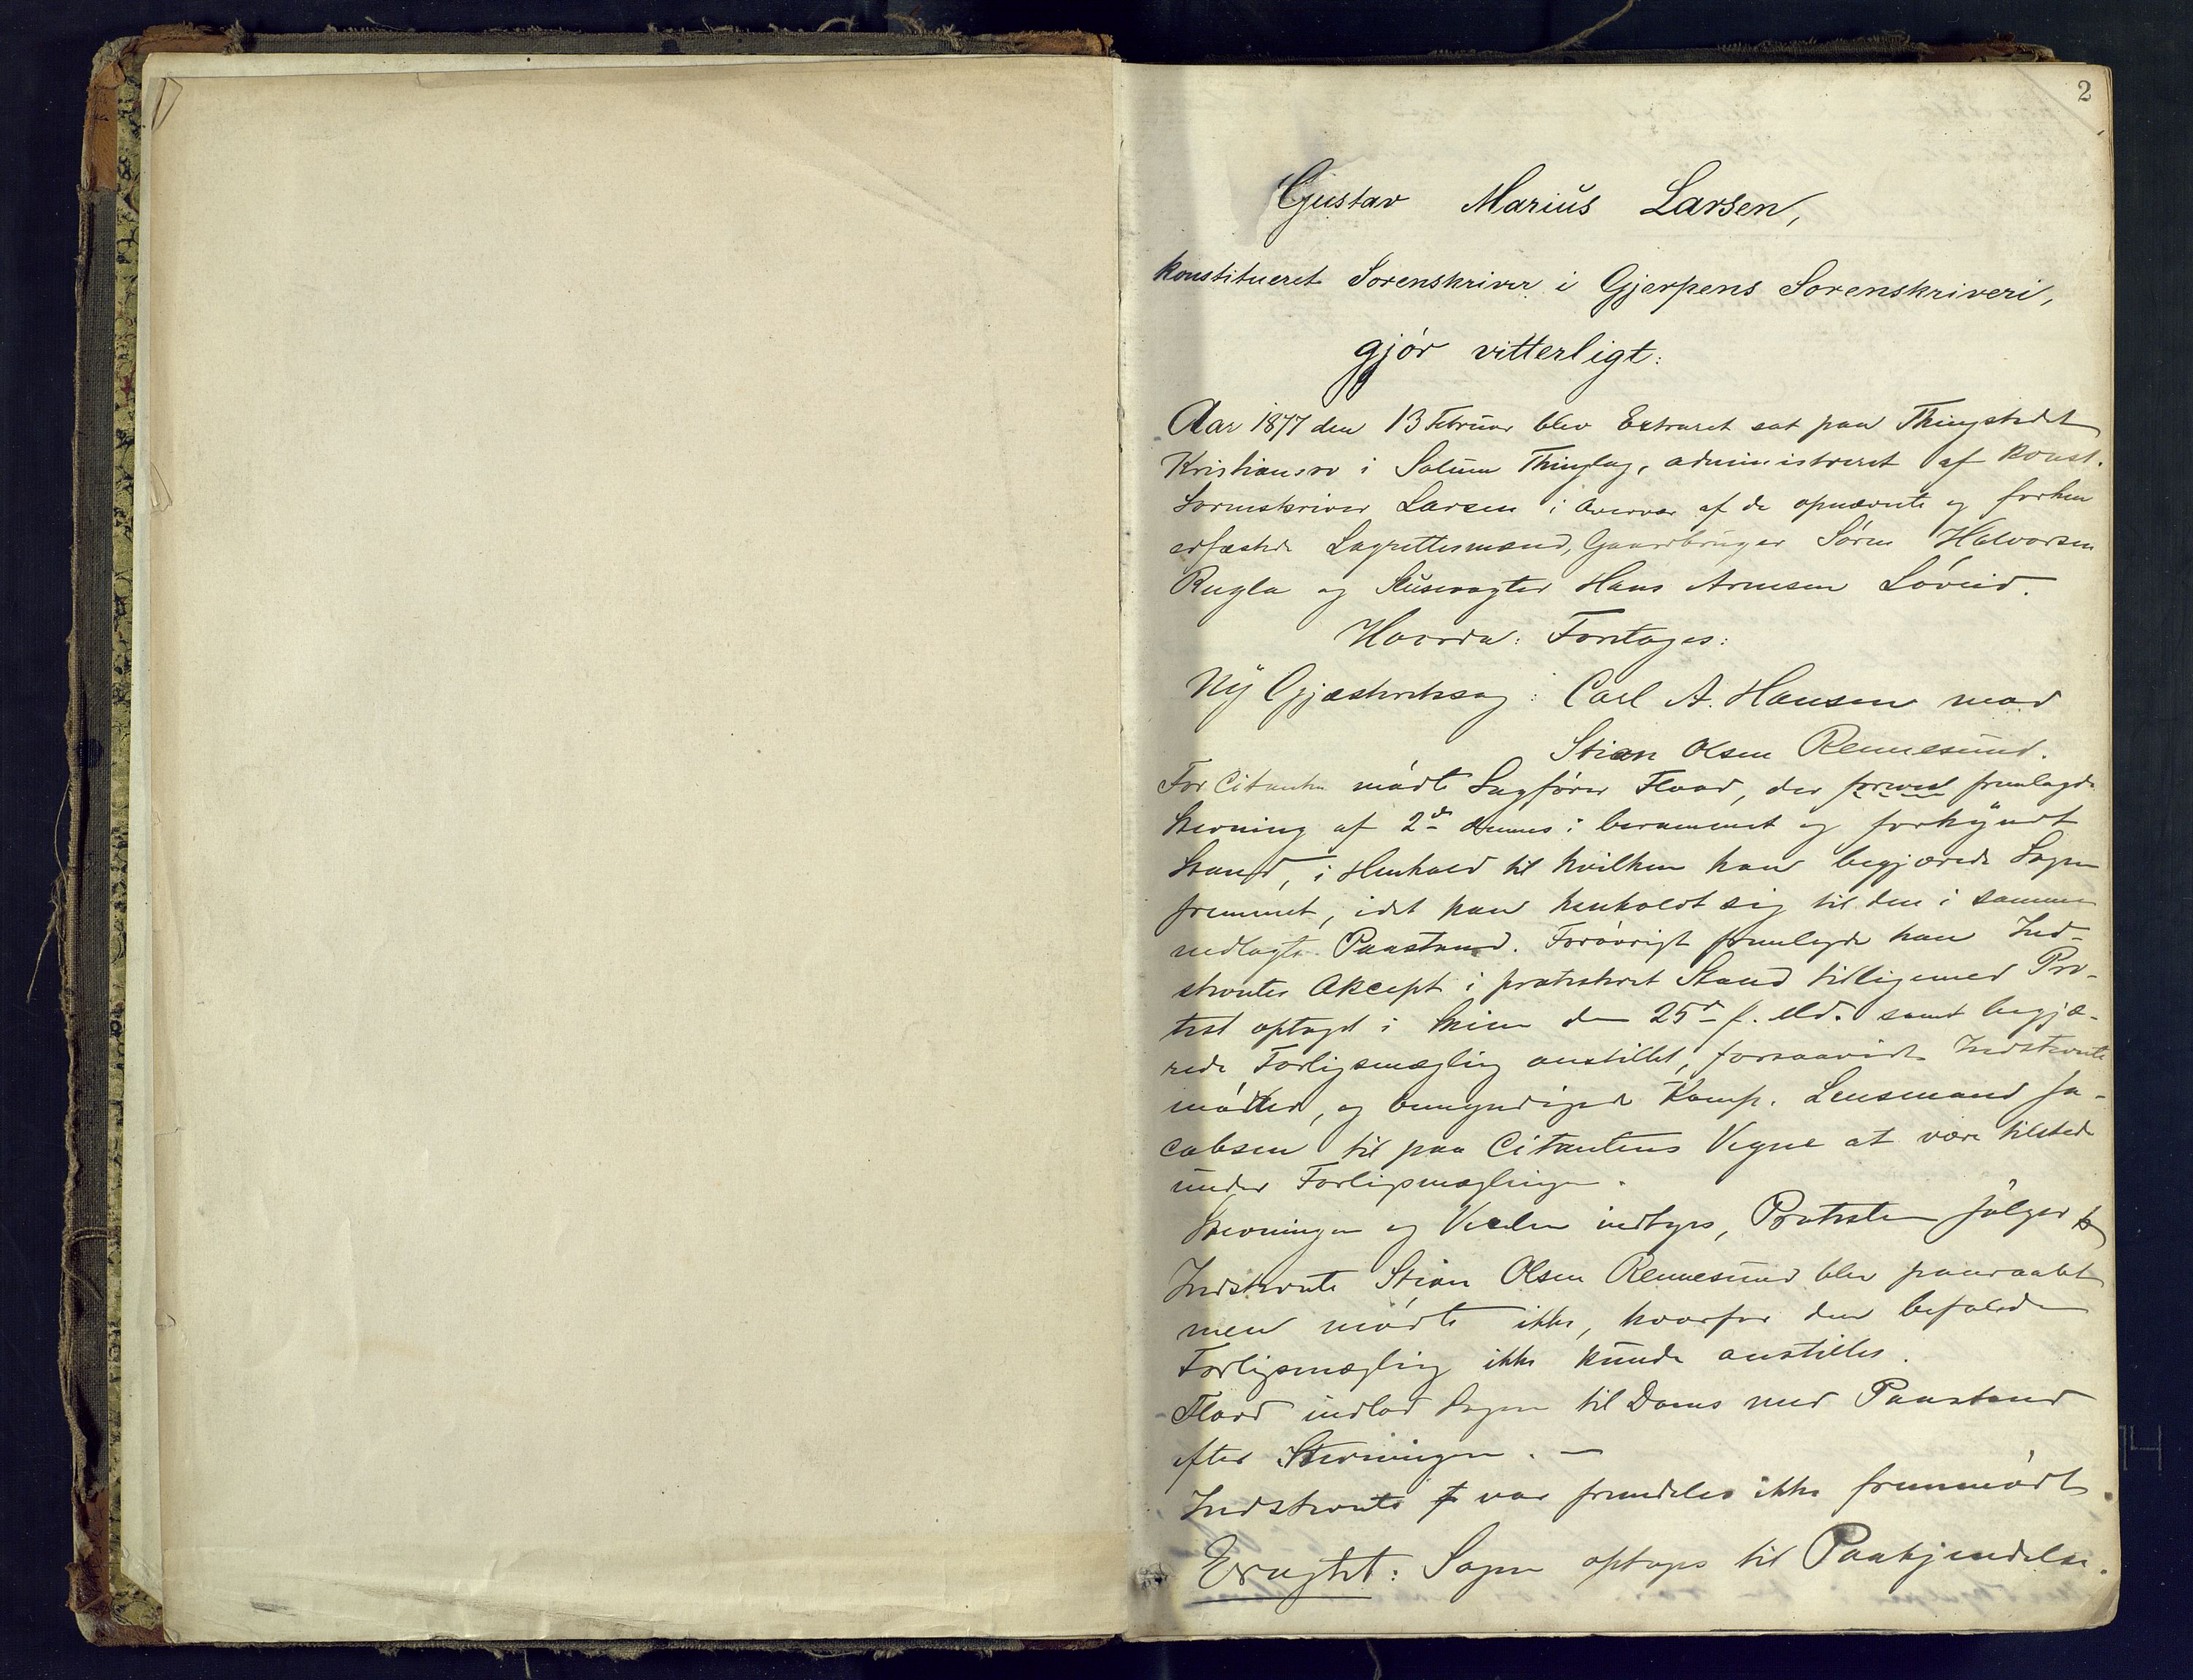 2
Gustav Marius Larsen,
konstitueret Sorenskriver i Gjerpens Sorenskriveri,
gjör vitterligt:
Aar 1877 den 13 Februar blev Extraret sat paa Thingstedet
Kristiansro i Solum Thinglag, administreret af konst.
Sorenskriver Larsen i Overvær af de opnævnte og forhen
edfæstede Lagrettesmænd, Gaardbruger Sören Halvorsen
Rugla og Slusevogter Hans Arnesen Löveid.
Hvorda: Foretages:
Ny Gjæsteretssag: Carl A. Hansen mod
Stian Olsen Rennesund.
For Citanten mödte Sagförer Flood, der fremlagde
Stevning af 2den dennes i berammet og forkyndt
Stand, i Henhold til hvilken han begjærede Sagen
fremmet, idet han henholdt sig til den i samme
nedlagte Paastand. Forövrigt fremlagde han Ind-
stevntes Akcept i protesteret Stand tilligemed Pro-
test optaget i Skien den 25de f. Md. samt begjæ-
rede Forligsmægling anstillet, forsaavidt Indstevnte
mödte, og bemyndigede Komp. Lensmand Ja-
cobsen til paa Citantens Vegne at være tilstede
under Forligsmæglingen.
Stevningen og Vexelen indtages, Protesten fölger
Indstevnte Stian Olsen Rennesund blev paaraabt
men mödte ikke, hvorfor den befalede
Forligsmægling ikke kunde anstilles.
Flood indlod Sagen til Doms med Paastand
efter Stevningen. —
Indstevnte var fremdeles ikke fremmödt.
Eragtet: Sagen optages til Paakjendelse.